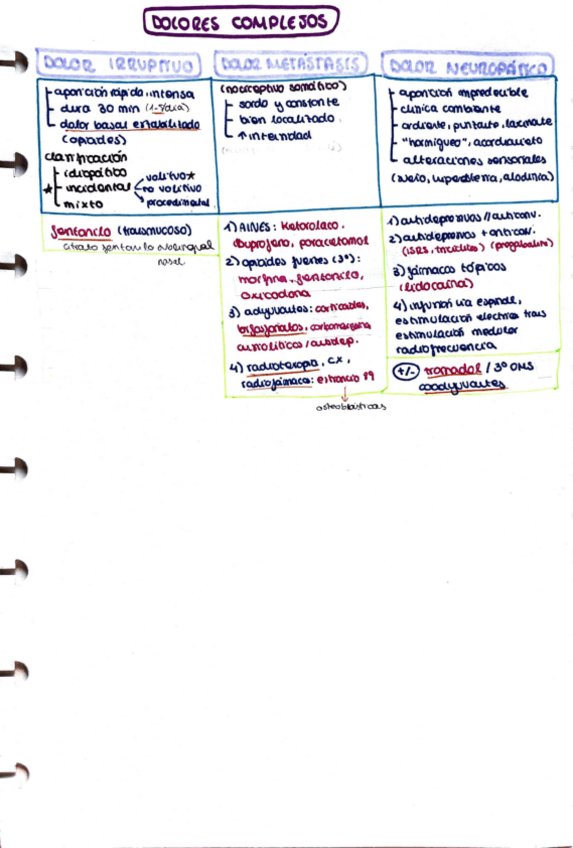 DOLORES COMPLEJOS
DOLOR IRRUPTIVO
aparición rápida, intensa
dura 30 min (1-5/día)
dolor basal estabilizado
(opiodes)
clasificación
idiopático
★ incidental
volitivo★
no volitivo
procedimental
mixto
fentanilo (transmucoso)
citrato fentanilo sublingual
nasal
DOLOR METÁSTASIS
(nociceptivo somático)
sordo y constante
bien localizado
↑ intensidad
1) AINES: Ketorolaco,
ibuprofeno, paracetamol
2) opioides fuertes (3º):
morfina, fentanilo,
oxicodona
3) adyuvantes: corticoides,
bifosfonatos, carbamacepina,
ansiolíticos / antidep.
4) radioterapia, CX,
radiofármaco: estroncio 89
osteoblásticas
DOLOR NEUROPÁTICO
aparición impredecible
clínica cambiante
ardiente, punzante, lacinante
"hormigueo", acorchamiento
alteraciones sensoriales
(, hiperestesia, alodinia)
1) antidepresivos // anticonv.
2) antidepresivos + anticonv.
(ISRS, tricíclicos) (pregabalina)
3) fármacos tópicos
(lidocaína)
4) infusión vía espinal,
estimulación eléctrica trans
estimulación medular
radiofrecuencia
+/- tramadol / 3º OMS
coadyuvantes